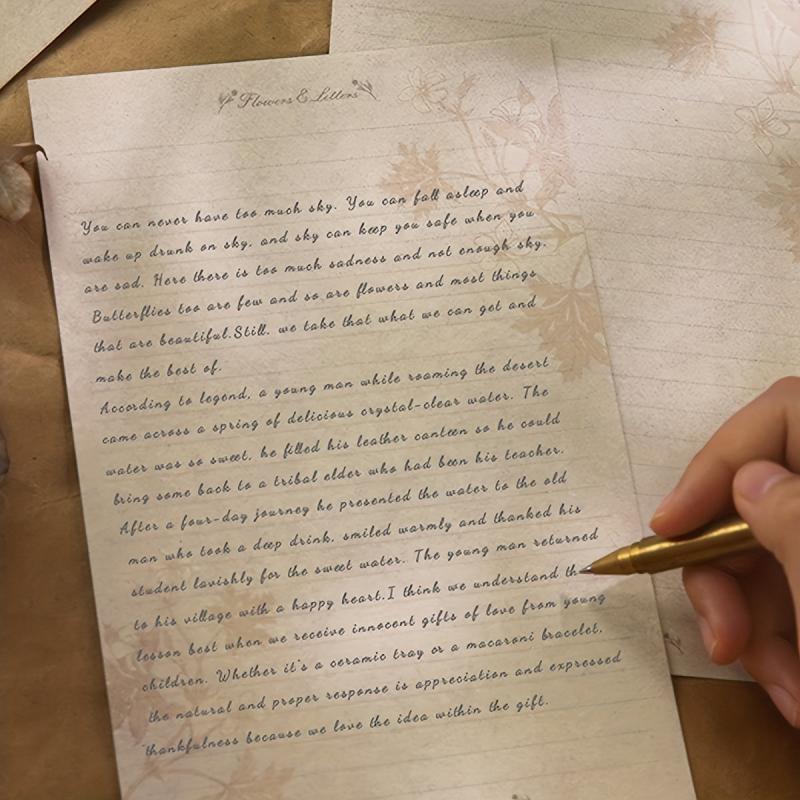 Flowers & Letters
You can never have too much sky. You can fall asleep and
wake up drunk on sky, and sky can keep you safe when you
are sad. Here there is too much sadness and not enough sky.
Butterflies too are few and so are flowers and most things
that are beautiful.Still, we take that what we can get and
make the best of.
According to legend, a young man while roaming the desert
came across a spring of delicious crystal-clear water. The
water was so sweet, he filled his leather canteen so he could
bring some back to a tribal elder who had been his teacher.
After a four-day journey he presented the water to the old
man who took a deep drink, smiled warmly and thanked his
student lavishly for the sweet water. The young man returned
to his village with a happy heart.I think we understand th
lesson best when we receive innocent gifts of love from young
children. Whether it's a ceramic tray or a macaroni bracelet,
the natural and proper response is appreciation and expressed
thankfulness because we love the idea within the gift.